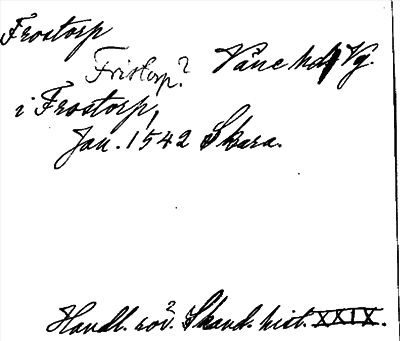 Frostorp
Fristorp? Väne hd, Vg.
i Frostorp,
Jan. 1542 Skara.
Handl. rör. Skand. hist. XXIX.